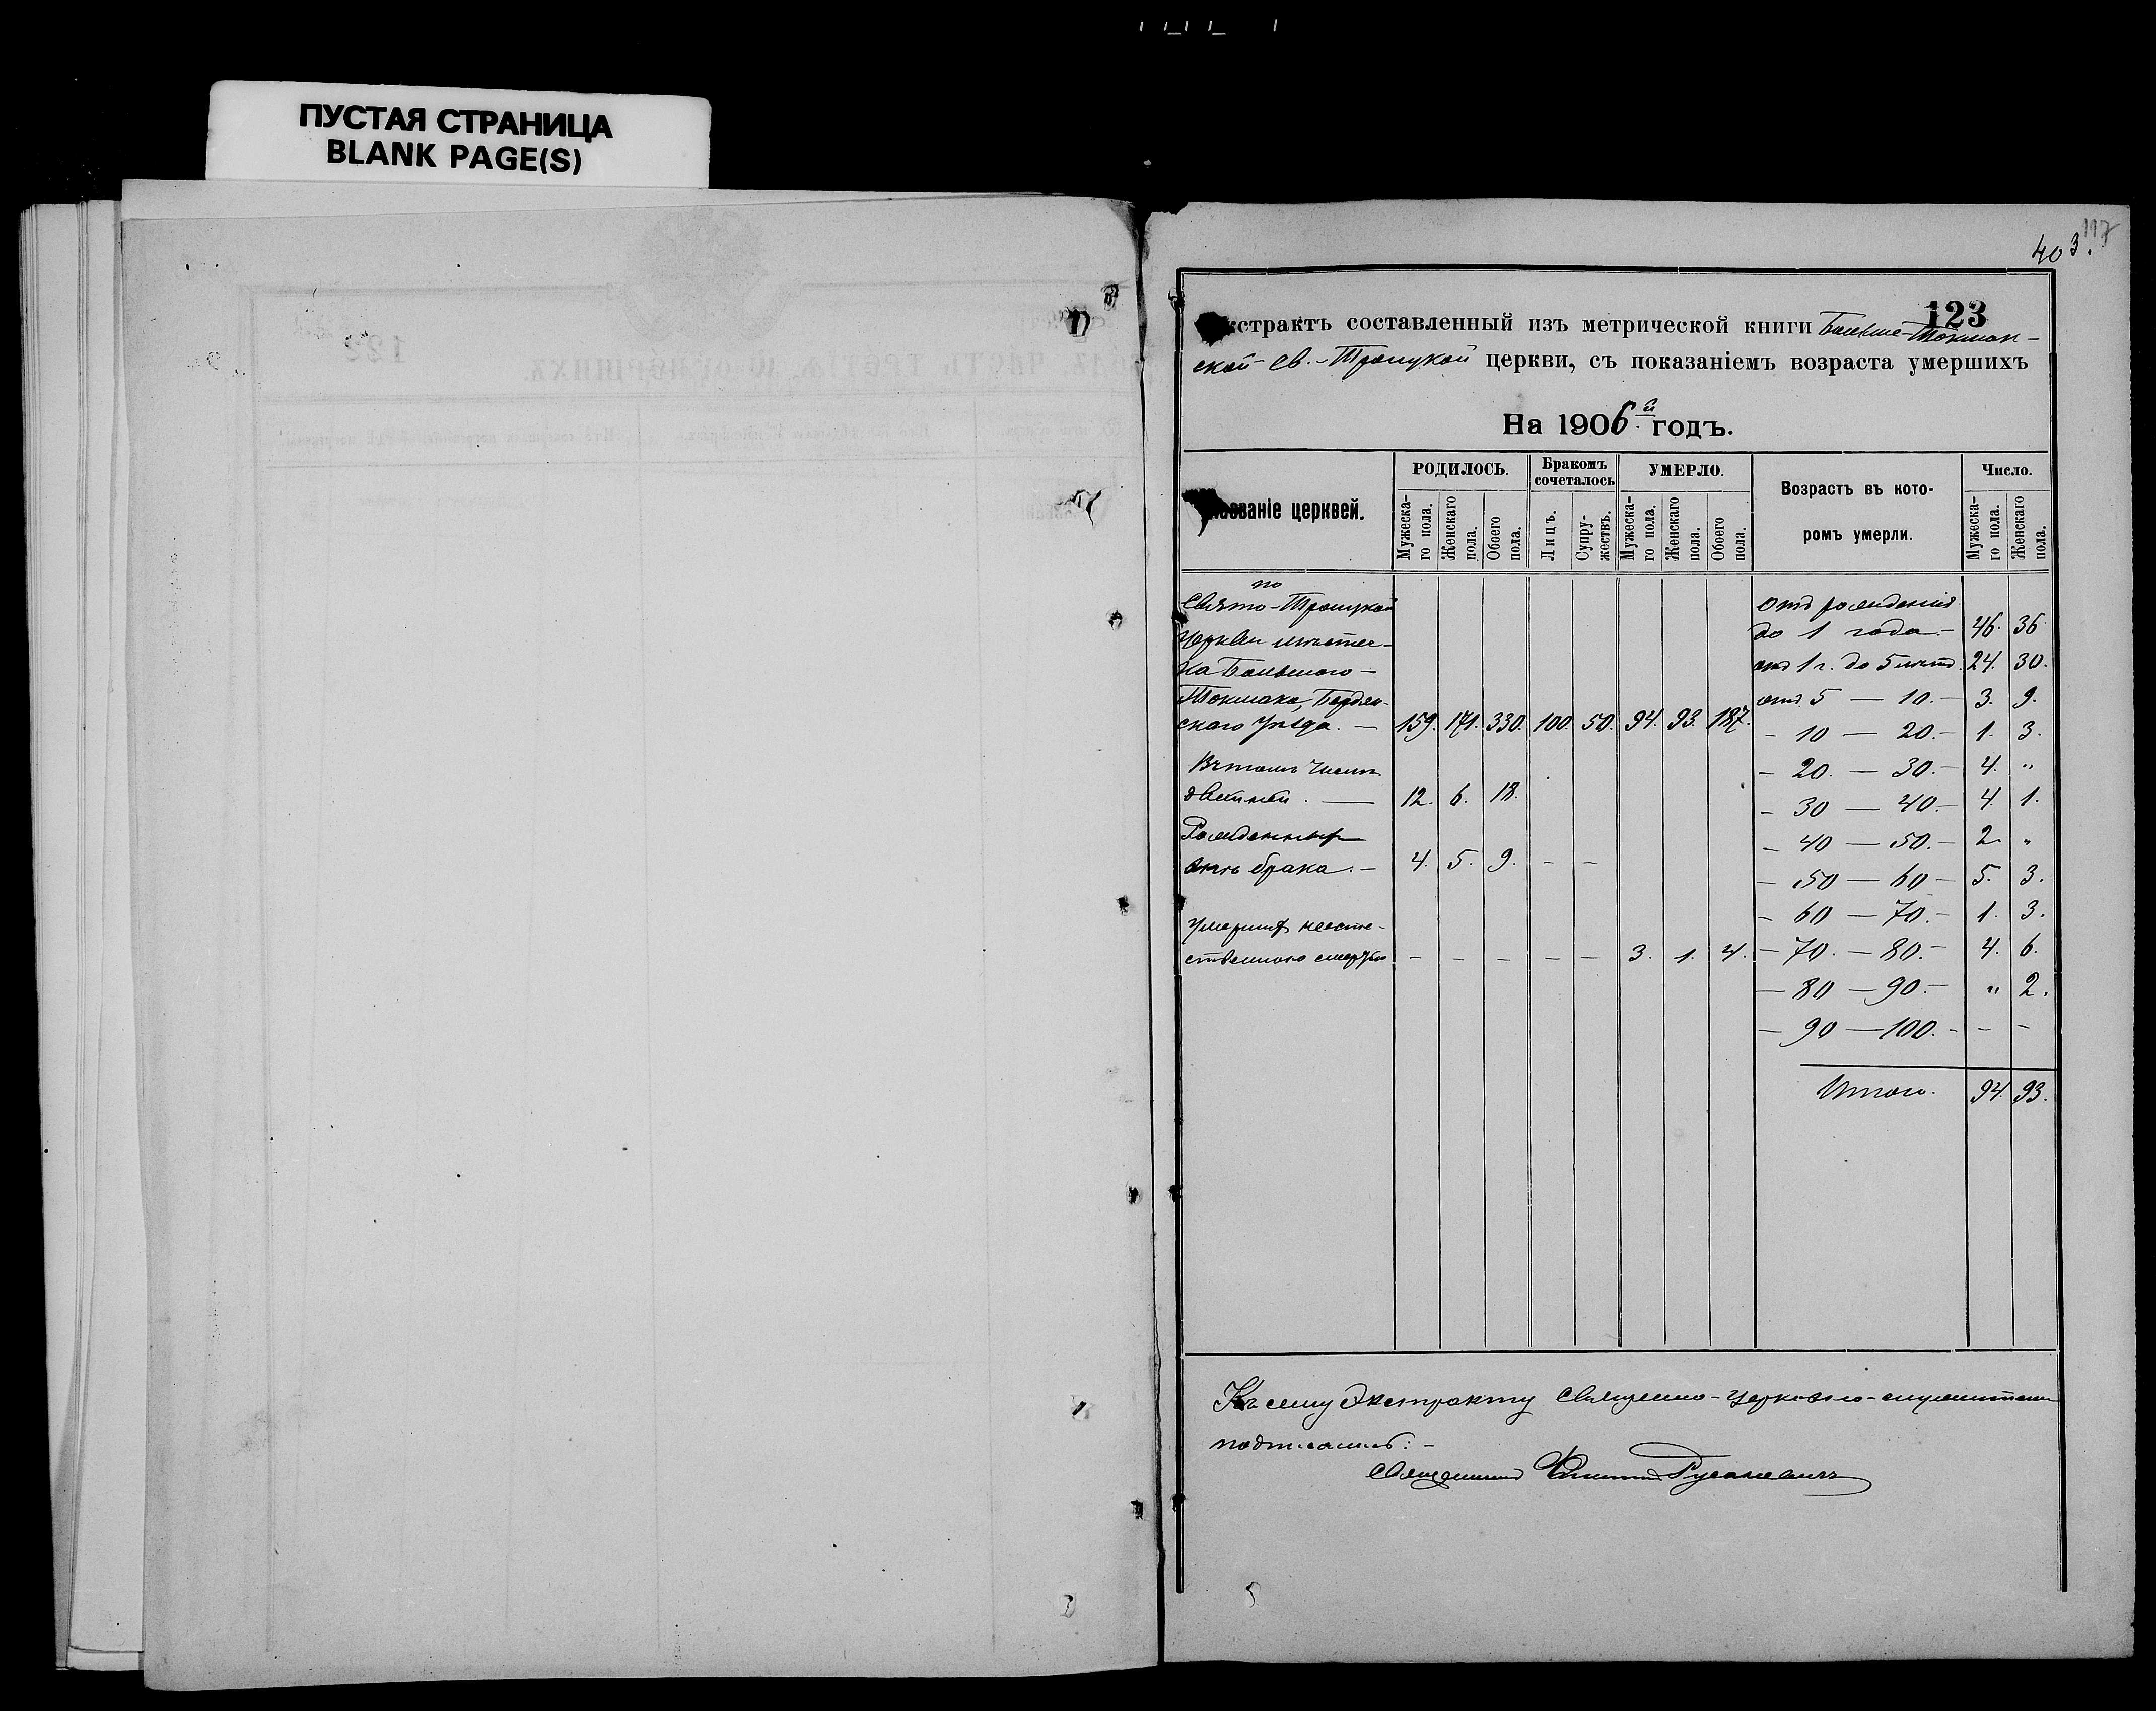 ПУСТАЯ СТРАНИЦА
BLANK PAGE(S)
117
403.
123
кстрактъ составленный изъ метрической книги Больше-Токмак-
ской Св.-Троицкой церкви, съ показаніемъ возраста умершихъ
На 1906й годъ.
званіе церквей.
РОДИЛОСЬ.
Бракомъ сочеталось
УМЕРЛО.
Возрастъ въ кото-
ромъ умерли.
Число.
Мужеска-
го пола.
Женскаго
пола.
Обоего
пола.
Лицъ.
Супру-
жествъ.
Мужеска-
го пола.
Женскаго
пола.
Обоего
пола.
Мужеска-
го пола.
Женскаго
пола.
по
Свято-Троицкой
Церкви мѣстеч-
ка Большого-
Токмака, Бердян-
скаго уѣзда. — 159. 171. 330. 100. 50. 94. 93. 187.
Въ томъ числѣ
двойней. — 12. 6. 18.
Рожденныхъ
внѣ брака. — 4. 5. 9. - -
Умершихъ неесте-
ственною смертью - - - - - 3. 1. 4.
отъ рожденія
до 1 года. - 46. 36
отъ 1 г. до 5 лѣтъ. 24. 30.
отъ 5 — 10. - 3. 9.
- 10 — 20. - 1. 3.
- 20. — 30. - 4. "
- 30 — 40. - 4. 1.
- 40 — 50. - 2. "
- 50 — 60 - 5. 3.
- 60 — 70. - 1. 3.
- 70. — 80. - 4. 6.
- 80 — 90. - " 2.
- 90 — 100. - - -
Итого. 94. 93.
Къ сему Экстракту Священно-церковно-служители
подписались: -
Священникъ